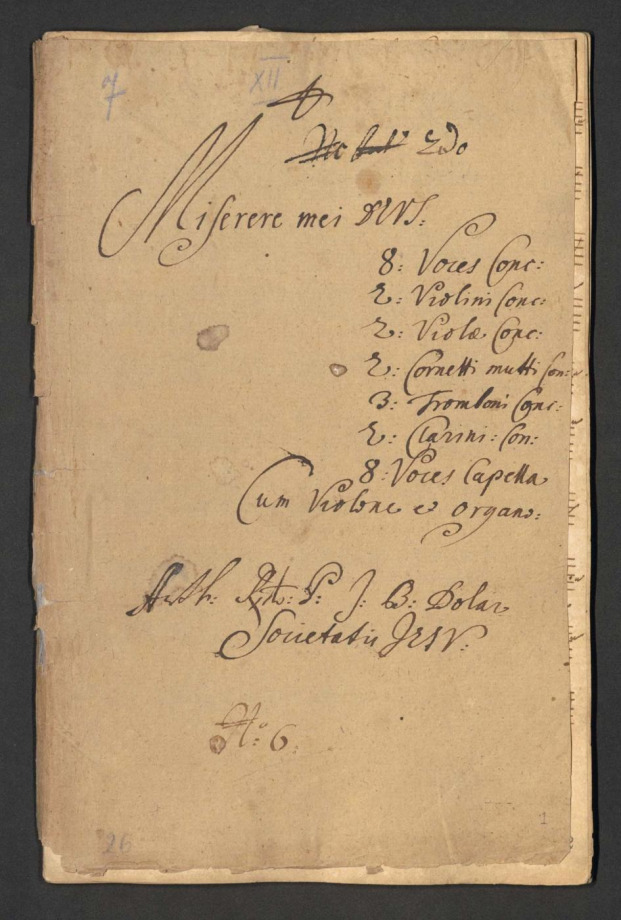 7
XII
2do
Miserere mei DEVS:
8: Voces Conc:
2: Violini Conc:
2: Violæ Conc:
2: Cornetti mutti Con:
3: Tromboni Conc:
2: Clarini: Con:
8: Voces Capella
Cum Violone et organo:
Auth: Rdo: P: J: B: Dolar
Societatis JESV:
No: 6.
26
1